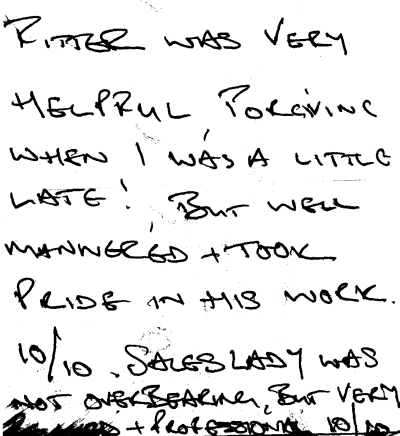 FITTER WAS VERY
HELPFUL FORGIVING
WHEN I WAS A LITTLE
LATE! BUT WELL
MANNERED + TOOK
PRIDE IN HIS WORK.
10/10. SALES LADY WAS
NOT OVERBEARING, BUT VERY
+ PROFESSIONAL 10/10